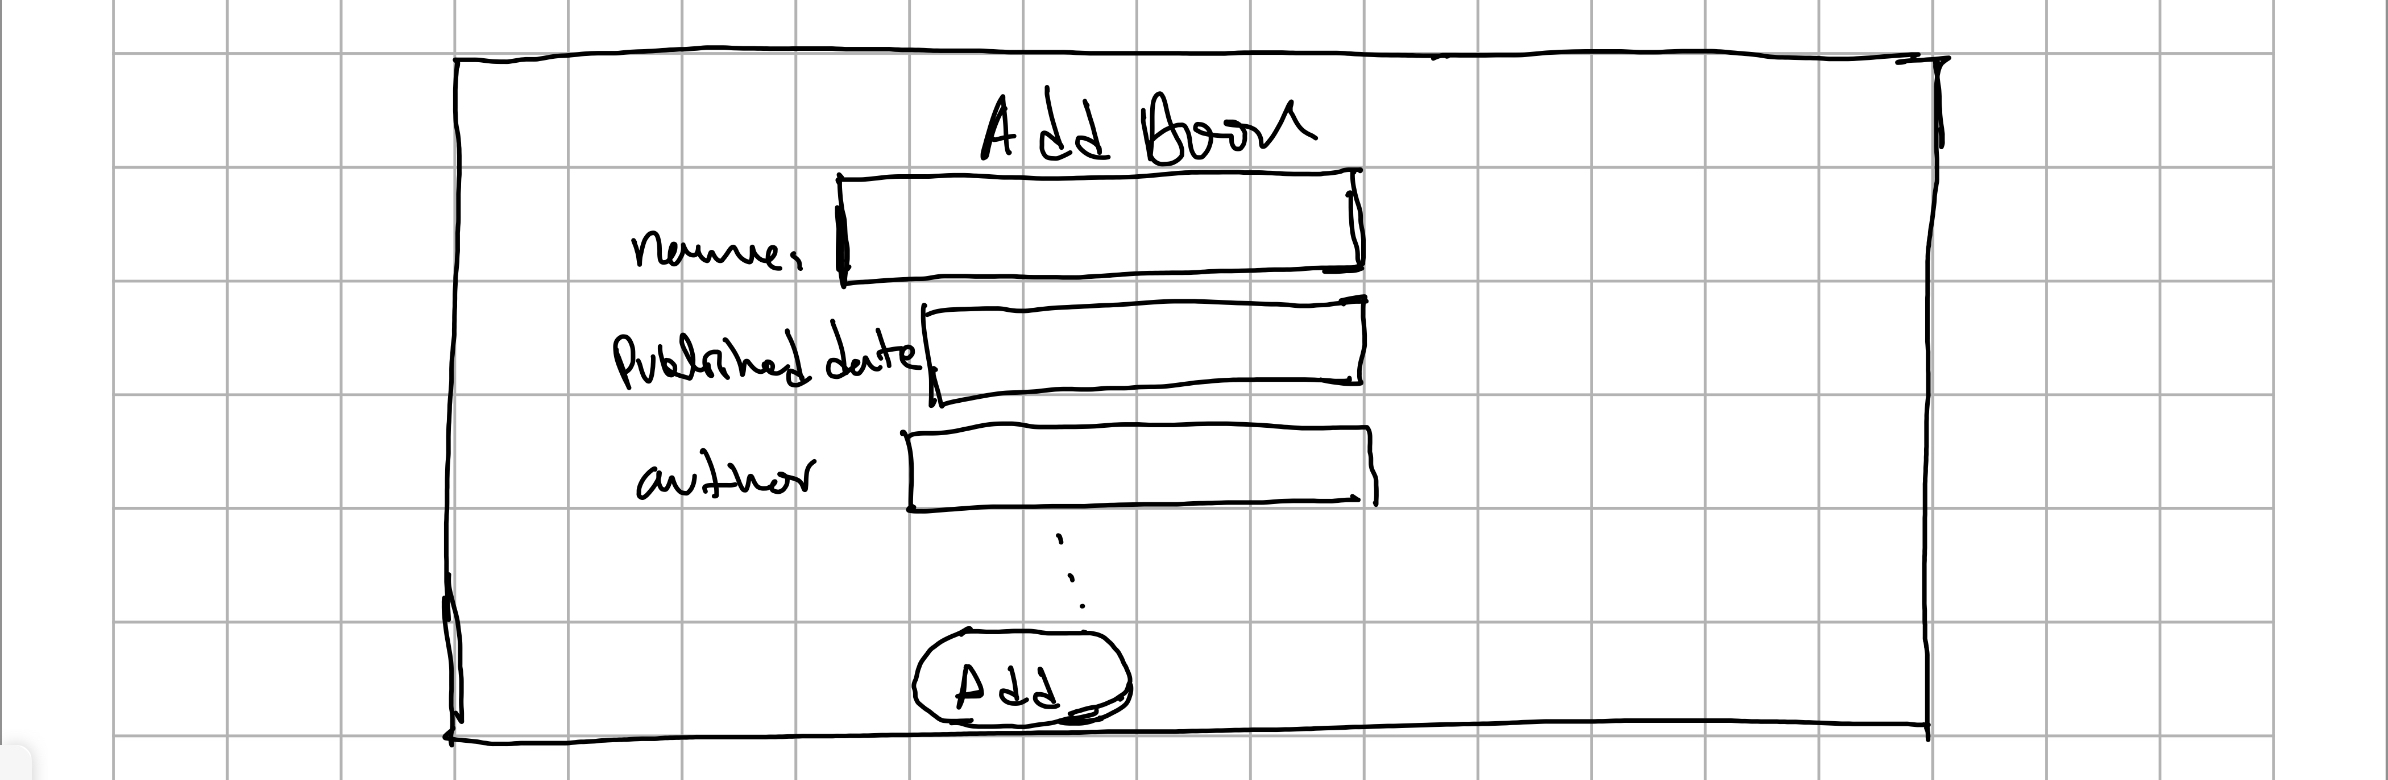 Add Book
name:
Published date
author
Add